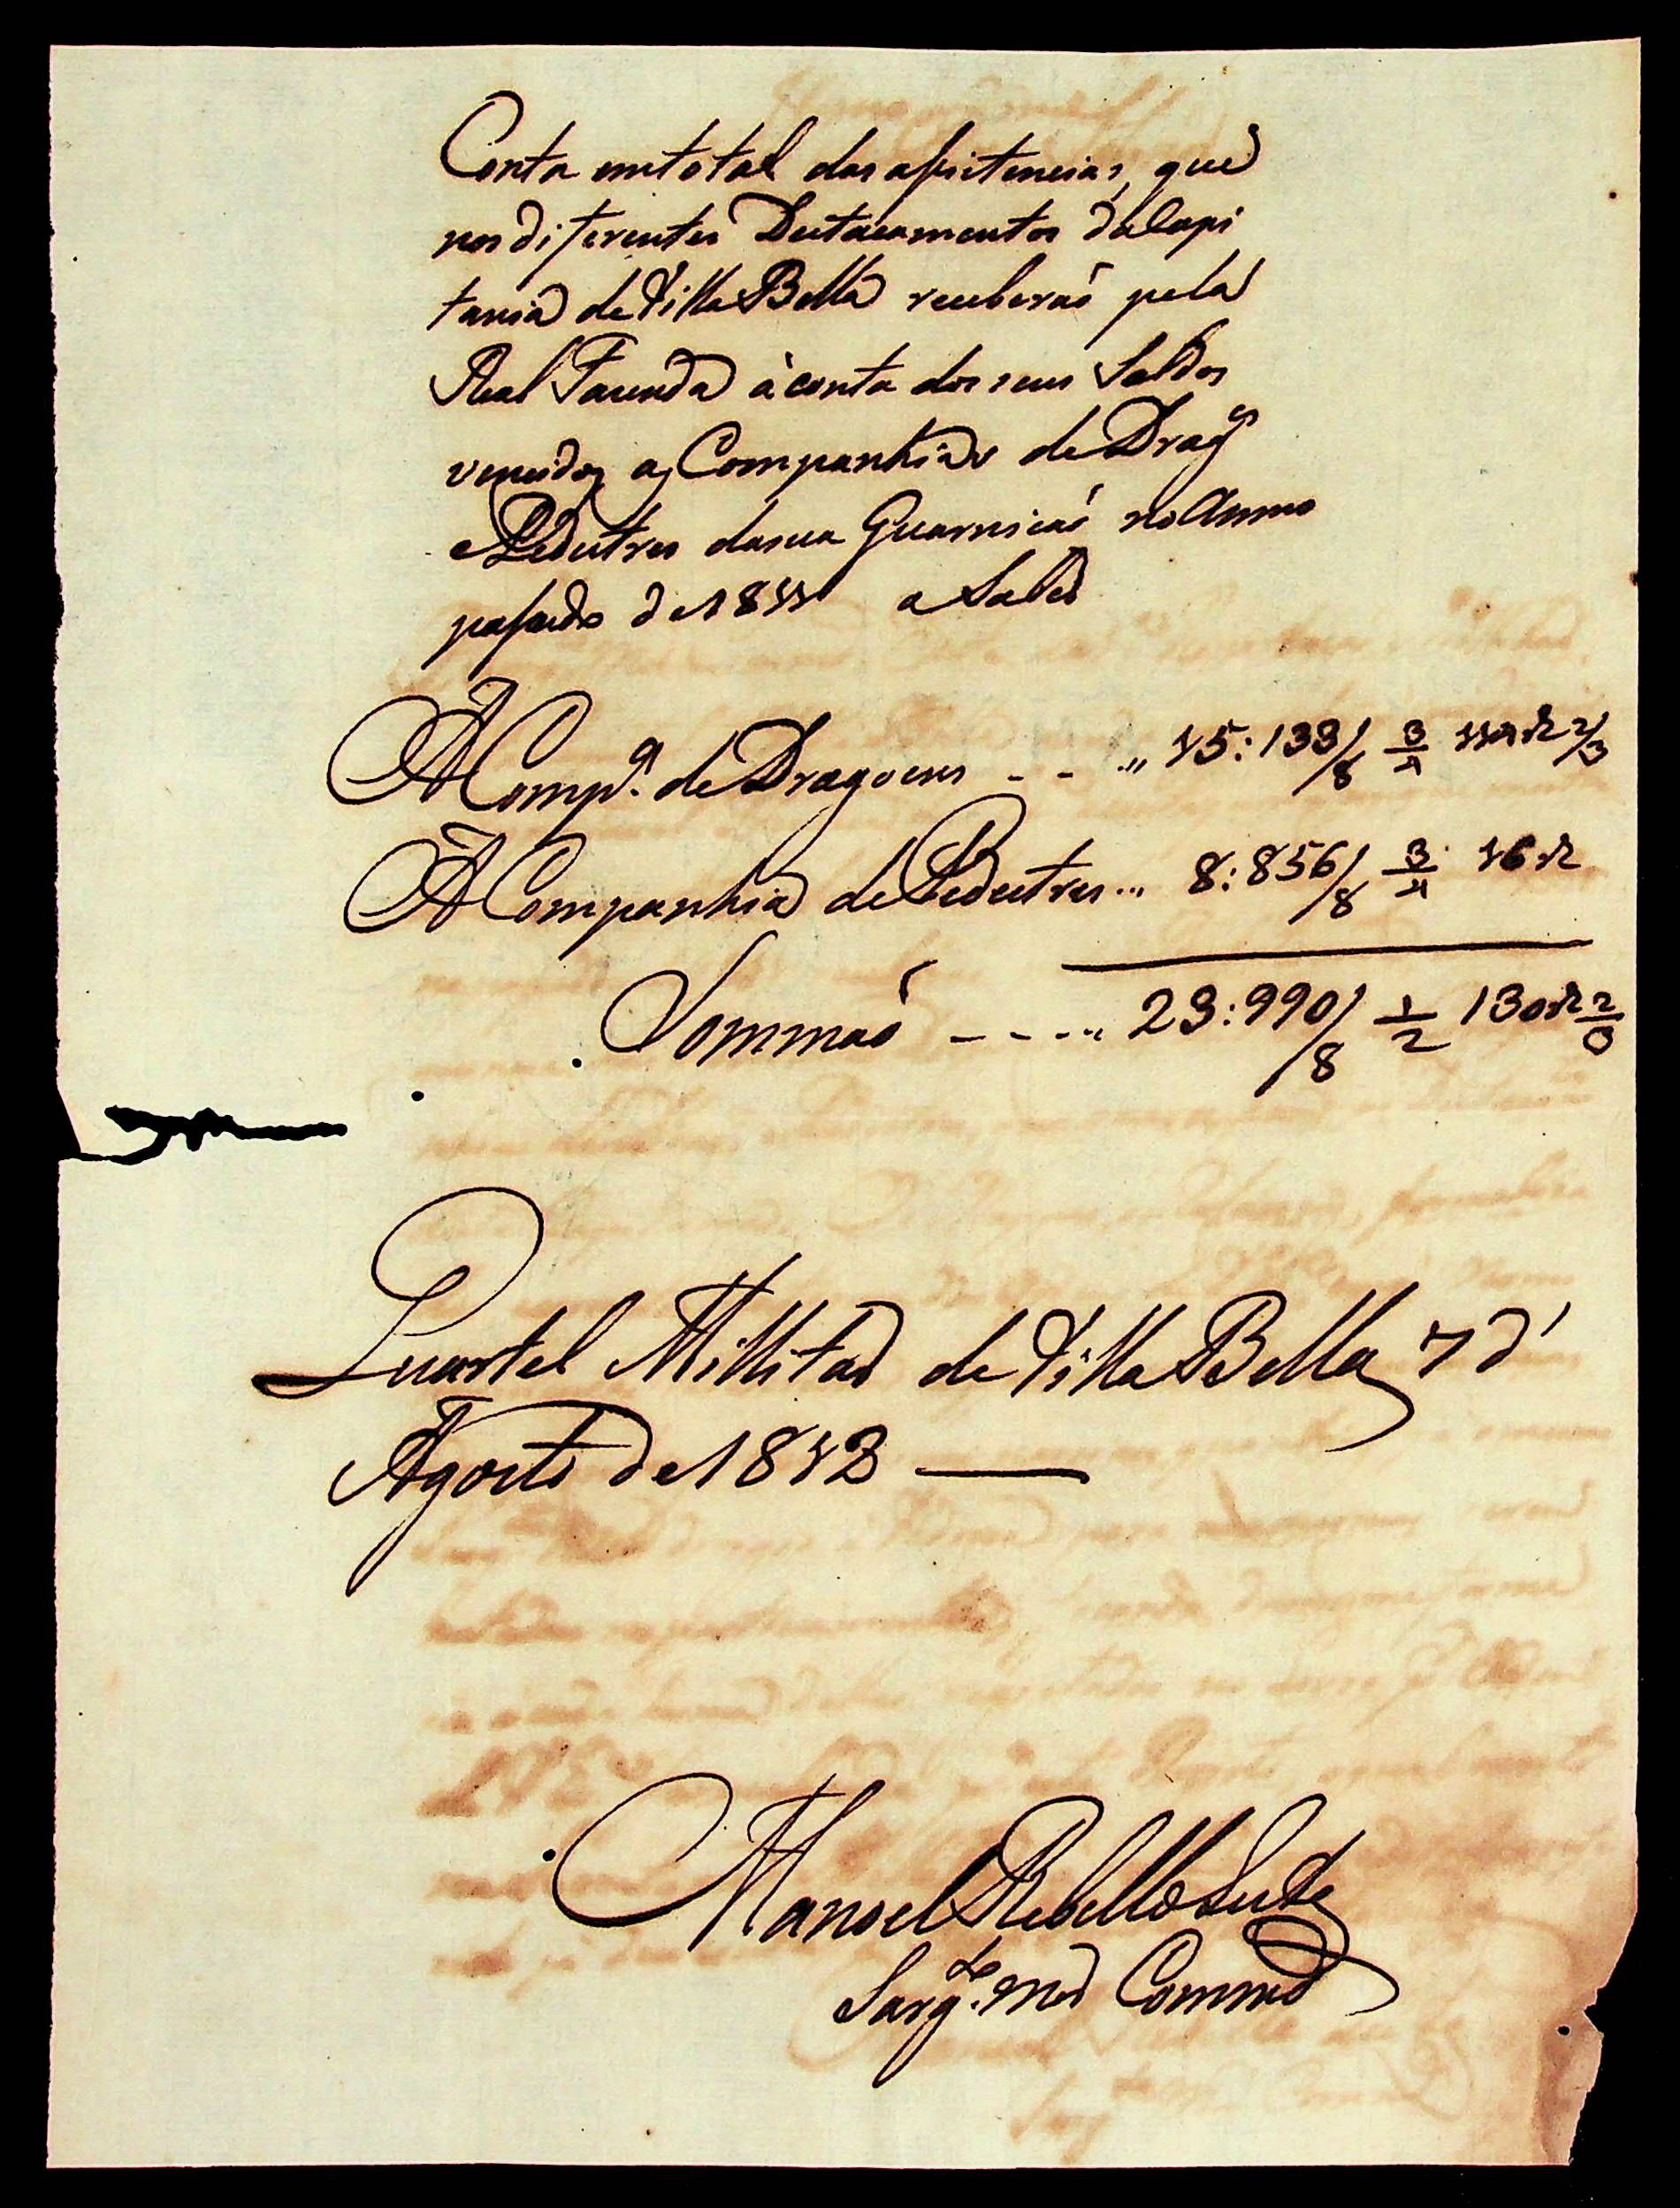 Conta emtotal das assistencias, que
nos differentes Destacamentos da Capi
tania de Villa Bella receberaõ pela
Real Fazenda á conta dos seus Soldos
vencidos as Companhias de Drag.es
e Pedestres da sua Guarnicaõ no Anno
passado de 1811 a Saber
A Comp.a de Dragoens - - ,,, 15:133/8 3/4 114 r 2/3
A Companhia de Pedestres... 8:856/8 3/4 16 r
Sommaõ - - - .. 23:990/8 1/2 130 r 2/3
Quartel Millitar de Villa Bella 7 d'
Agosto de 1813
Manoel Rebello Leite
Sarg.to Mór Comm.e